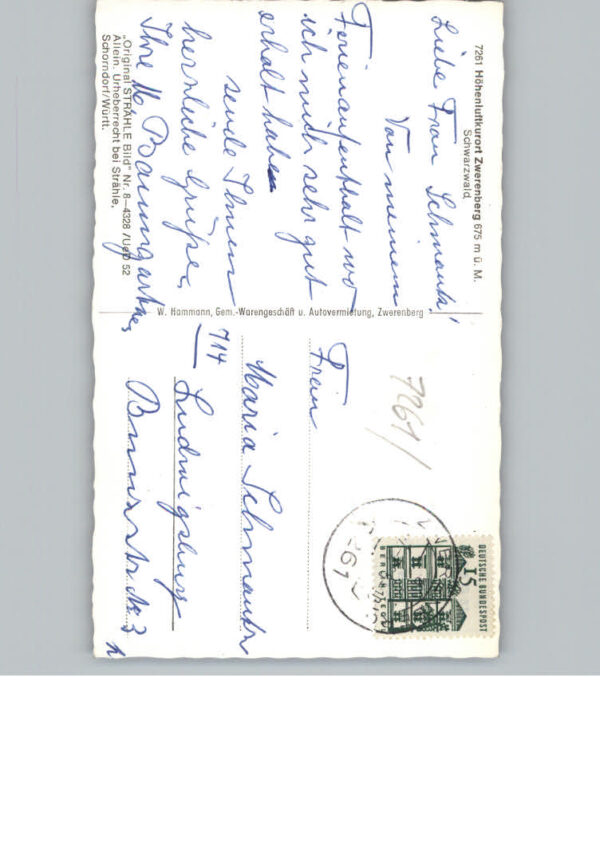 7261 Höhenluftkurort Zwerenberg 675 m ü. M.
Schwarzwald
Liebe Frau Schmautz!
Von meinem
Ferienaufenthalt wo
ich mich sehr gut
erholt habe
sende Ihnen
herzliche Grüße,
Ihre M. Baumgartner
"Original STRÄHLE Bild" Nr. 8–4328 /UaD 52
Allein. Urheberrecht bei Strähle,
Schorndorf/Württ.
W. Hammann, Gem.-Warengeschäft u. Autovermietung, Zwerenberg
7261/
DEUTSCHE BUNDESPOST
15
7261
Frau
Maria Schmautz
714
Ludwigsburg